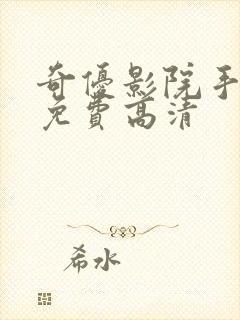 奇優影院手
免費高清
希水